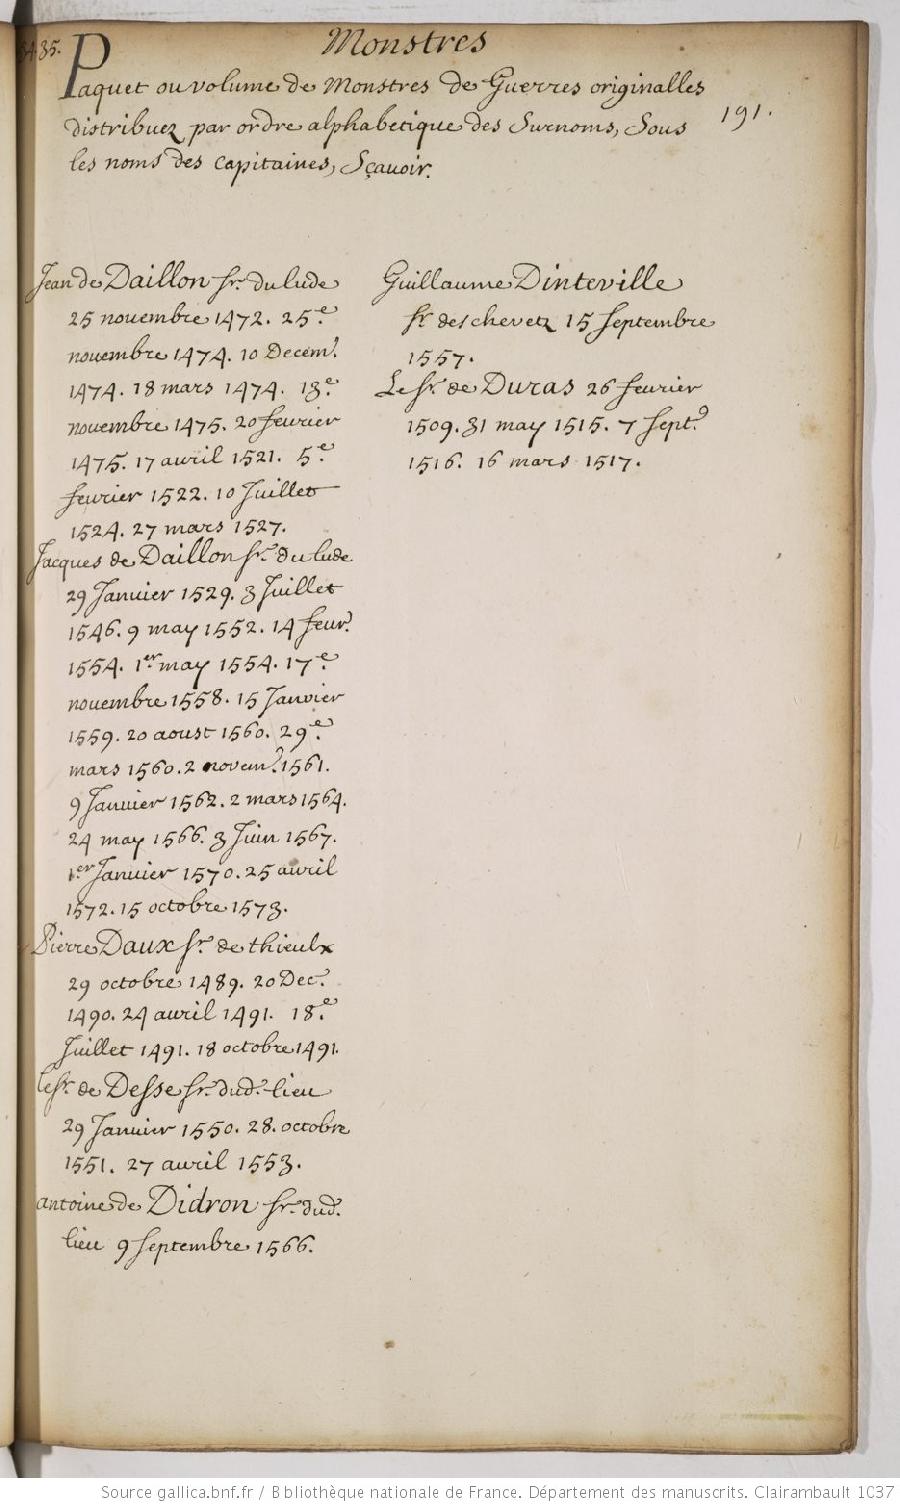 34.35.
Monstres
Paquet ou volume de Monstres de Guerres originalles
distribuez par ordre alphabetique des Surnoms, Sous
191.
les noms des capitaines, Sçavoir.
Jean de Daillon Sr. du lude
25 novembre 1472. 25.e
novembre 1474. 10 Decem.
1474. 18 mars 1474. 13.e
novembre 1475. 20 fevrier
1475. 17 avril 1521. 5.e
fevrier 1522. 10 Juillet
1524. 27 mars 1527.
Jacques de Daillon Sr. du lude
29 Janvier 1529. 3 Juillet
1546. 9 may 1552. 14 fevr.
1554. 1.er may 1554. 17.e
novembre 1558. 15 Janvier
1559. 20 aoust 1560. 29.e
mars 1560. 2 novem. 1561.
9 Janvier 1562. 2 mars 1564.
24 may 1566. 3 Juin 1567.
1.er Janvier 1570. 25 avril
1572. 15 octobre 1573.
Pierre Daux Sr. de thieulx
29 octobre 1489. 20 Dec.
1490. 24 avril 1491. 18.e
Juillet 1491. 18 octobre 1491.
le Sr. de Desse Sr. dud. lieu
29 Janvier 1550. 28. octobre
1551. 27 avril 1553.
antoine de Didron Sr. dud.
lieu 9 Septembre 1566.
Guillaume Dinteville
Sr. deschevetz 15 Septembre
1557.
Le Sr. de Duras 26 fevrier
1509. 31 may 1515. 7 Sept.
1516. 16 mars 1517.
Source gallica.bnf.fr / Bibliothèque nationale de France. Département des manuscrits. Clairambault 1037